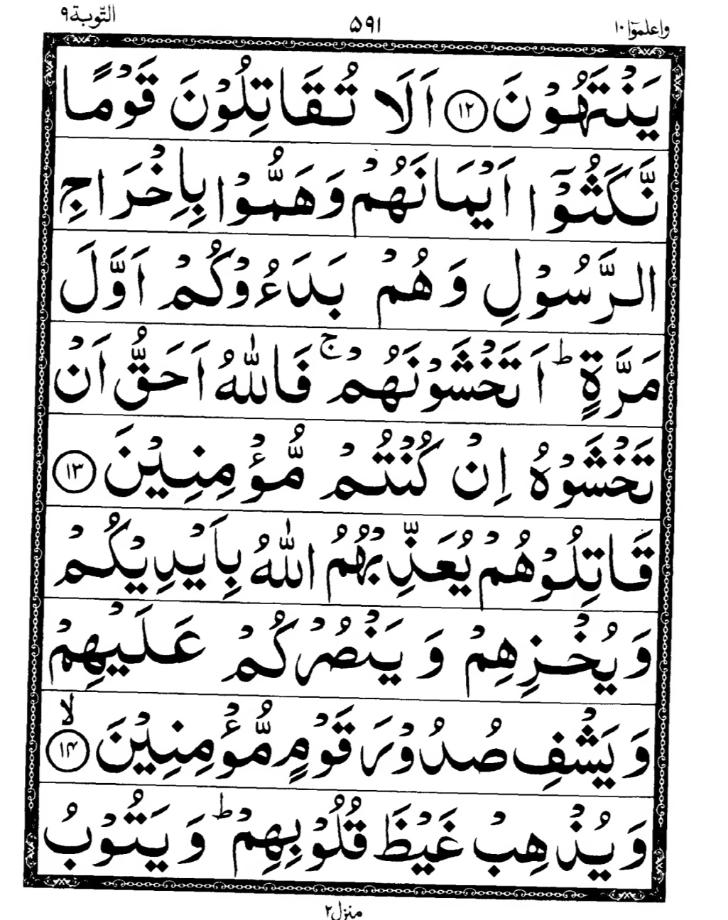 واعلموٓا ١٠ ٥٩١ التّوبة ٩
يَنْتَهُوْنَ ﴿۱۲﴾ اَلَا تُقَاتِلُوْنَ قَوْمًا
نَّكَثُوْٓا اَيْمَانَهُمْ وَهَمُّوْا بِاِخْرَاجِ
الرَّسُوْلِ وَهُمْ بَدَءُوْكُمْ اَوَّلَ
مَرَّةٍ ؕ اَتَخْشَوْنَهُمْ ۚ فَاللّٰهُ اَحَقُّ اَنْ
تَخْشَوْهُ اِنْ كُنْتُمْ مُّؤْمِنِيْنَ ﴿۱۳﴾
قَاتِلُوْهُمْ يُعَذِّبْهُمُ اللّٰهُ بِاَيْدِيْكُمْ
وَيُخْزِهِمْ وَيَنْصُرْكُمْ عَلَيْهِمْ
وَيَشْفِ صُدُوْرَ قَوْمٍ مُّؤْمِنِيْنَ ۙ﴿۱۴﴾
وَيُذْهِبْ غَيْظَ قُلُوْبِهِمْ ؕ وَيَتُوْبُ
منزل۲